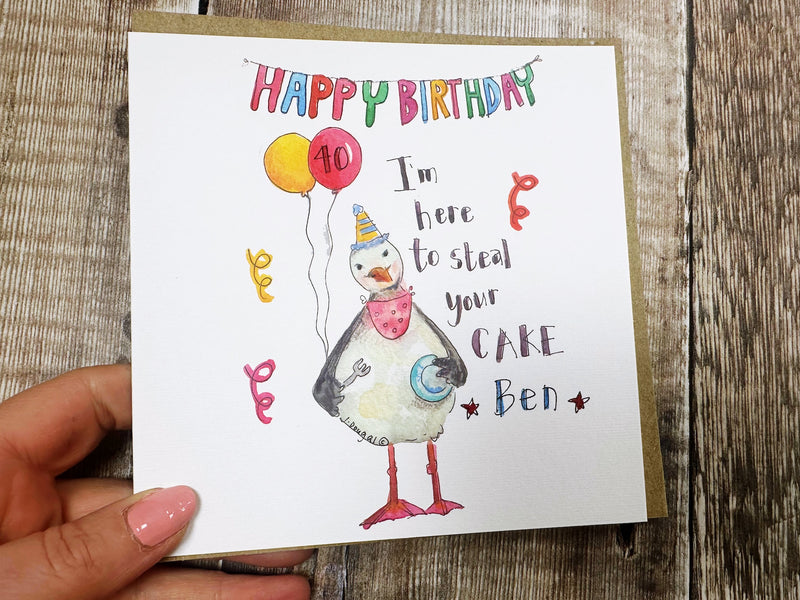 HAPPY BIRTHDAY
40
I'm
here
to steal
your
CAKE
Ben
J.Dougal ©